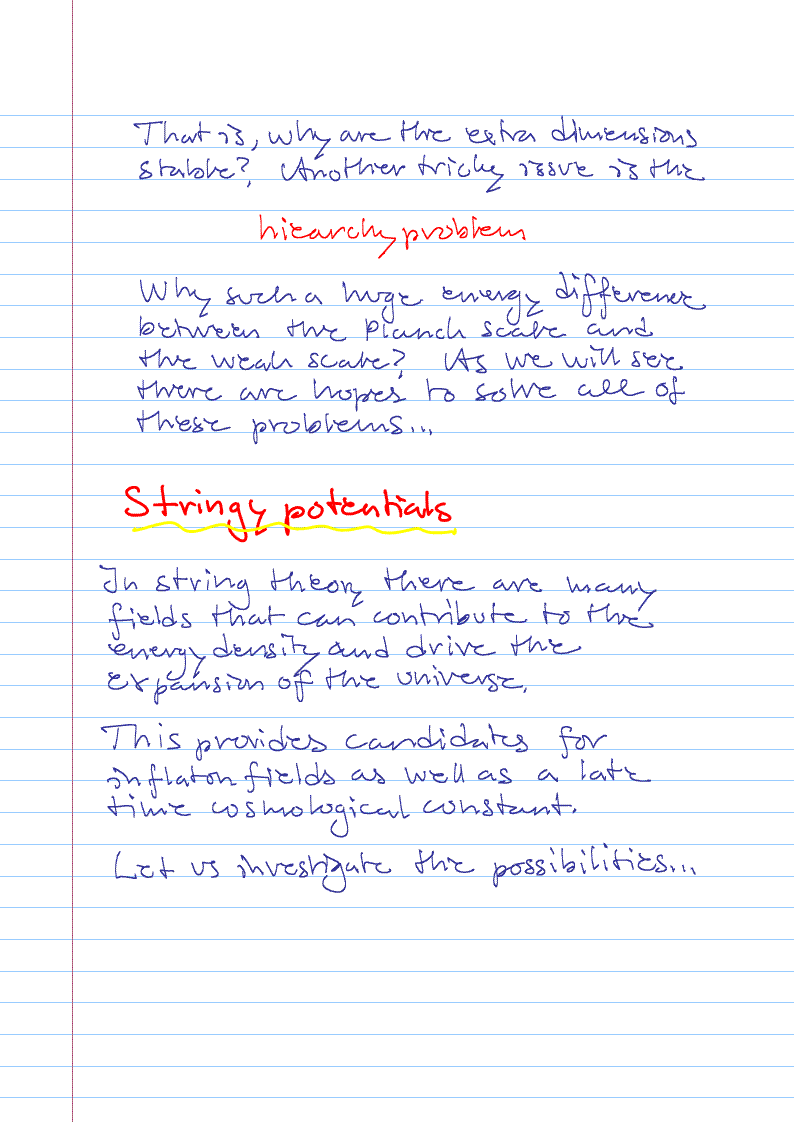 That is, why are the extra dimensions
stable? Another tricky issue is the
hiearchy problem
Why such a huge energy difference
between the Planck scale and
the weak scale? As we will see
there are hopes to solve all of
these problems...
Stringy potentials
In string theory there are many
fields that can contribute to the
energy density and drive the
expansion of the universe.
This provides candidates for
inflaton fields as well as a late
time cosmological constant.
Let us investigate the possibilities...